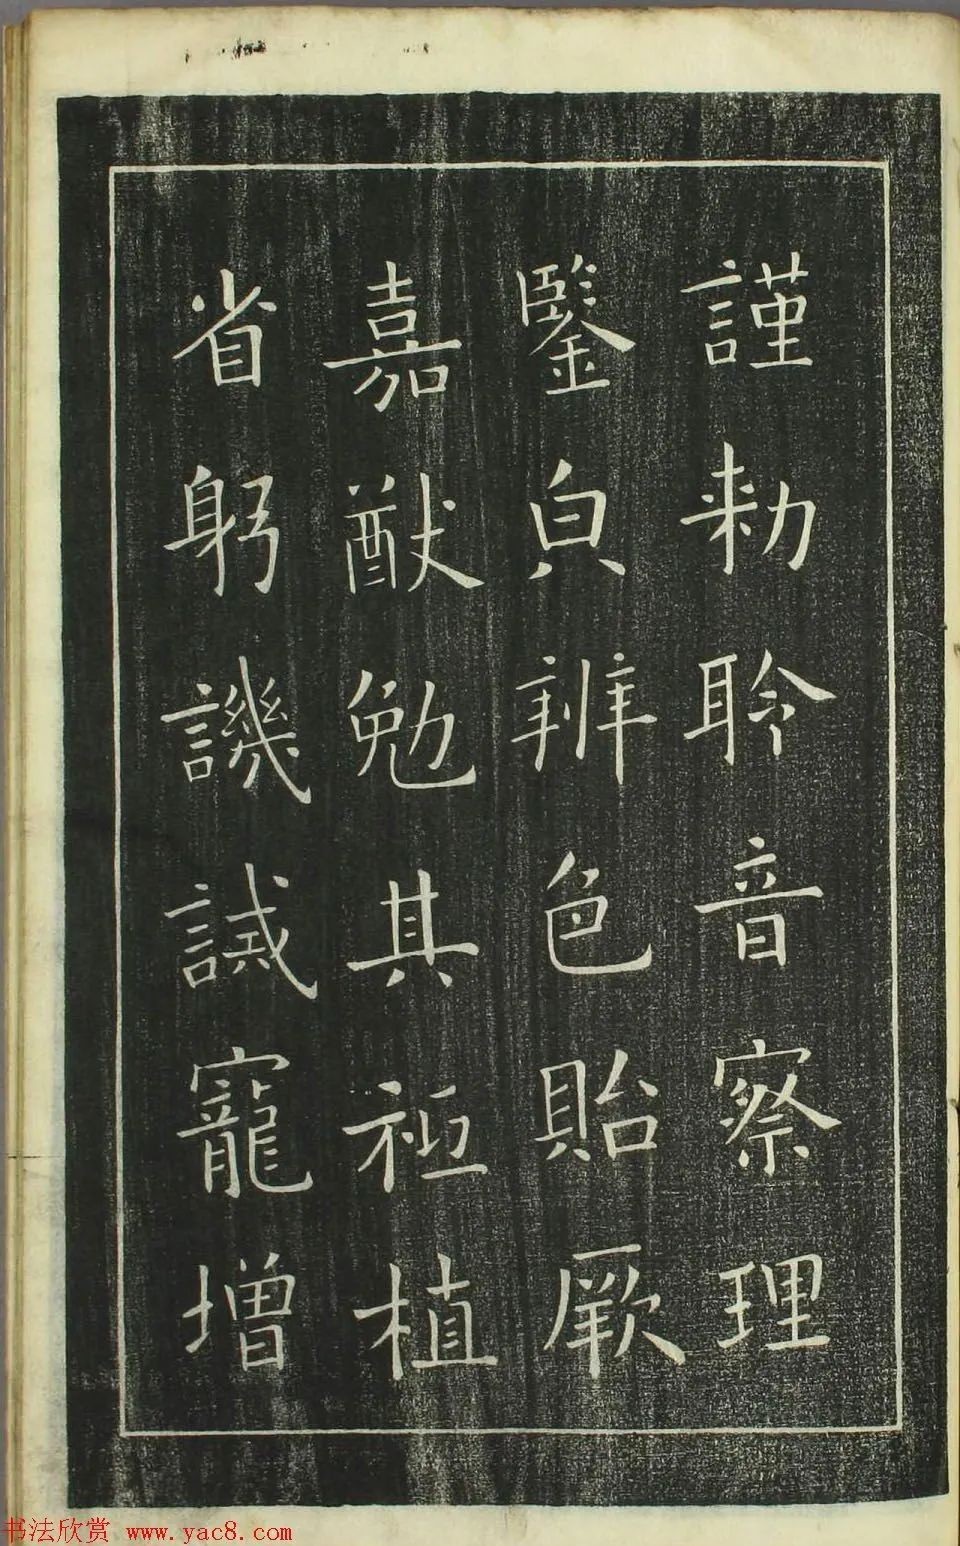 謹勑聆音察理
鑒皃辨色貽厥
嘉猷勉其祗植
省躬譏誡寵增
书法欣赏 www.yac8.com